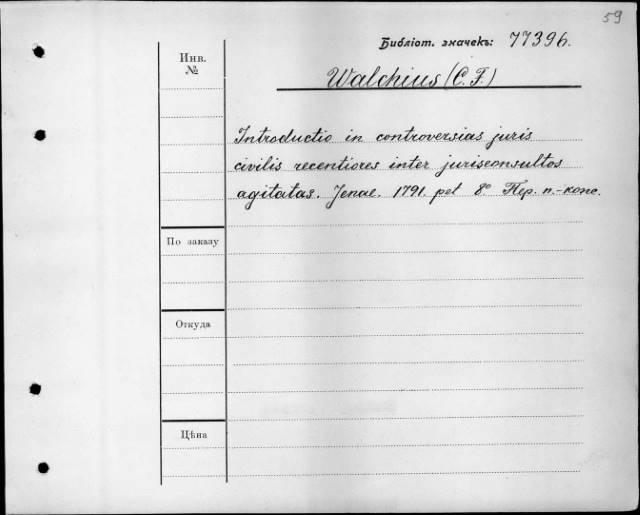 59
Библіот. значекъ: 77396.
Инв.
№
Walchius (C. F.)
Introductio in controversias juris
civilis recentiores inter jurisconsultos
agitatas. Jenae. 1791. pet 8º Пер. п.-кожс.
По заказу
Откуда
Цѣна